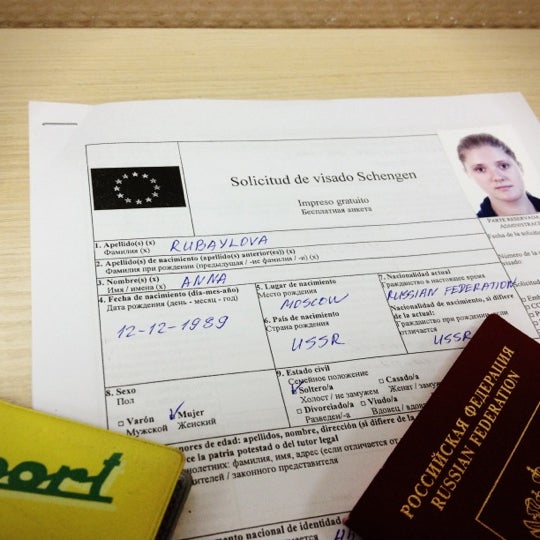 Solicitud de visado Schengen
Impreso gratuito
Бесплатная анкета
PARTE RESERVADA
ADMINISTRAC
Fecha de la solicitud
1. Apellido(s) (x) RUBAYLOVA
Фамилия (x)
2. Apellido(s) de nacimiento (apellido(s) anterior(es)) (x)
Фамилия при рождении (предыдущая / -ие фамилия / -и) (x)
3. Nombre(s) (x) ANNA
Имя / имена (x)
4. Fecha de nacimiento (día-mes-año)
Дата рождения (день - месяц - год)
12-12-1989
5. Lugar de nacimiento
Место рождения
MOSCOW
6. País de nacimiento
Страна рождения
USSR
7. Nacionalidad actual
Гражданство в настоящее время
RUSSIAN FEDERATION
Nacionalidad de nacimiento, si difiere
de la actual:
Гражданство при рождении, если
отличается
USSR
Número de la
visado
8. Sexo
Пол
Varón Mujer
Мужской Женский
9. Estado civil
Семейное положение
Soltero/a Casado/a
Холост / не замужем Женат / замужем
Divorciado/a Viudo/a
Разведен/-а Вдовец / вдова
nores de edad: apellidos, nombre, dirección (si difiere de la
ce la patria potestad o del tutor legal
нолетних: фамилия, имя, адрес (если отличается от
ителя / законного представителя
mento nacional de identidad
port
РОССИЙСКАЯ ФЕДЕРАЦИЯ
RUSSIAN FEDERATION